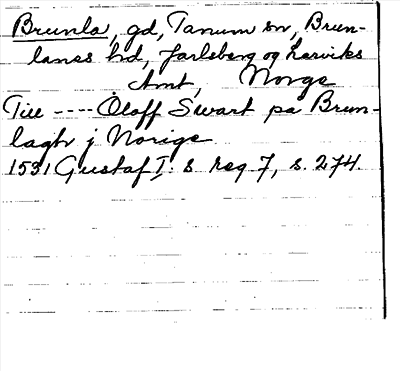 Brunla, gd, Tanum sn, Brun-
lanes hd, Jarlsberg og Larviks
Amt, Norge
Till ---- Oloff Swart på Brun-
lagh j Norige
1531 Gustaf I: s reg 7, s. 274.